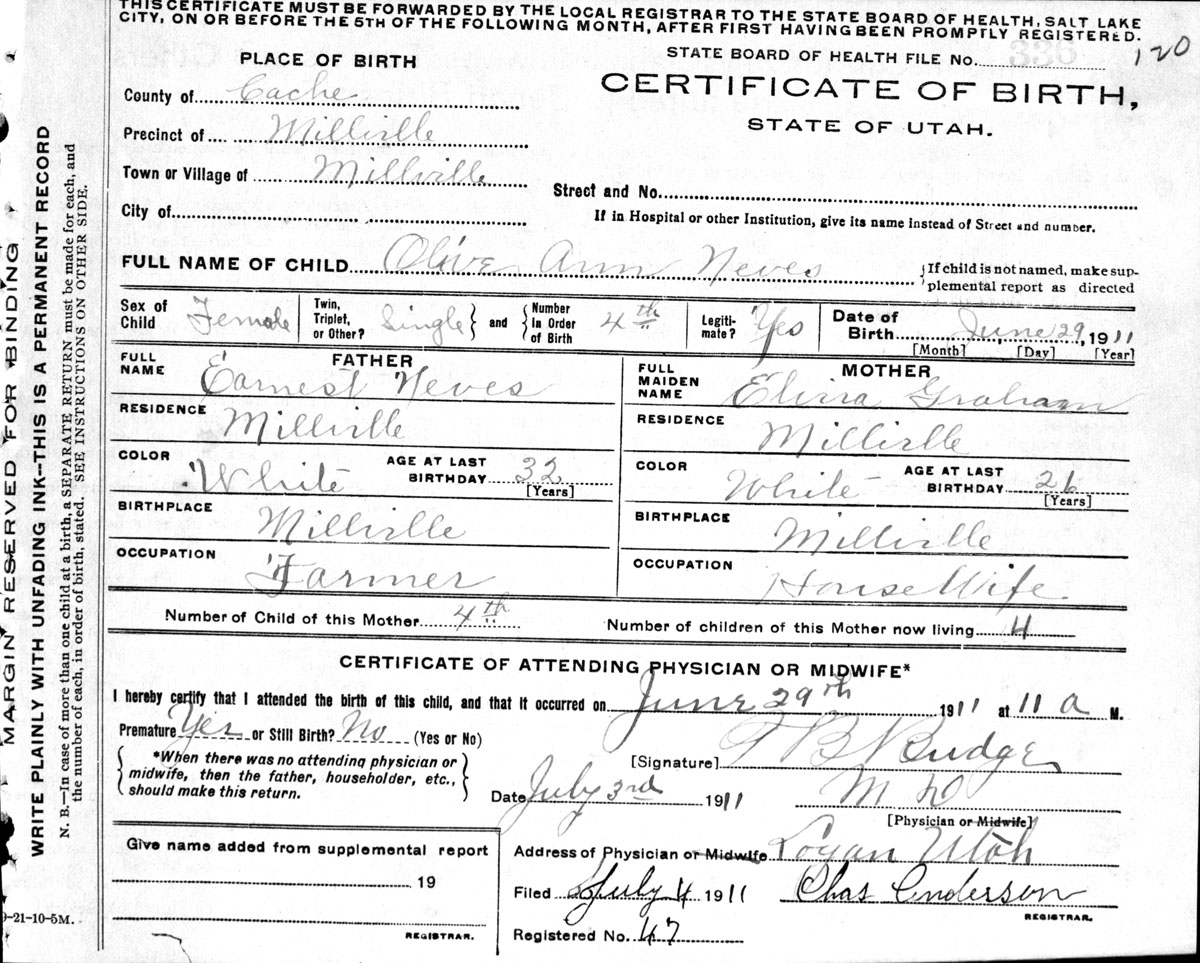 THIS CERTIFICATE MUST BE FORWARDED BY THE LOCAL REGISTRAR TO THE STATE BOARD OF HEALTH, SALT LAKE
CITY, ON OR BEFORE THE 5TH OF THE FOLLOWING MONTH, AFTER FIRST HAVING BEEN PROMPTLY REGISTERED.
120
STATE BOARD OF HEALTH FILE No. 336
PLACE OF BIRTH
CERTIFICATE OF BIRTH,
STATE OF UTAH.
County of Cache
Precinct of Millville
Town or Village of Millville
Street and No.
City of
If in Hospital or other Institution, give its name instead of Street and number.
FULL NAME OF CHILD Olive Ann Neves
{If child is not named, make sup-
plemental report as directed
Sex of Child Female
Twin, Triplet, or Other? Single} and {Number In Order of Birth 4th
Legiti- mate? Yes
Date of Birth June 29, 1911
[Month] [Day] [Year]
FATHER
FULL NAME Earnest Neves
RESIDENCE Millville
COLOR White AGE AT LAST BIRTHDAY 32
[Years]
BIRTHPLACE Millville
OCCUPATION Farmer
MOTHER
FULL MAIDEN NAME Elvira Graham
RESIDENCE Millville
COLOR White AGE AT LAST BIRTHDAY 26
[Years]
BIRTHPLACE Millville
OCCUPATION House Wife
Number of Child of this Mother 4th Number of children of this Mother now living 4
CERTIFICATE OF ATTENDING PHYSICIAN OR MIDWIFE*
I hereby certify that I attended the birth of this child, and that it occurred on June 29th 1911 at 11 a M.
Premature Yes or Still Birth? No (Yes or No)
{*When there was no attending physician or
midwife, then the father, householder, etc.,
should make this return.}
[Signature] T B Budge
Date July 3rd 1911 M D
[Physician or Midwife]
Address of Physician or Midwife Logan Utah
Filed July 4 1911 Chas Anderson
REGISTRAR.
Registered No. 47
Give name added from supplemental report
19
REGISTRAR.
9-21-10-5M.
MARGIN RESERVED FOR BINDING
WRITE PLAINLY WITH UNFADING INK--THIS IS A PERMANENT RECORD
N. B.—In case of more than one child at a birth, a SEPARATE RETURN must be made for each, and
the number of each, in order of birth, stated. SEE INSTRUCTIONS ON OTHER SIDE.